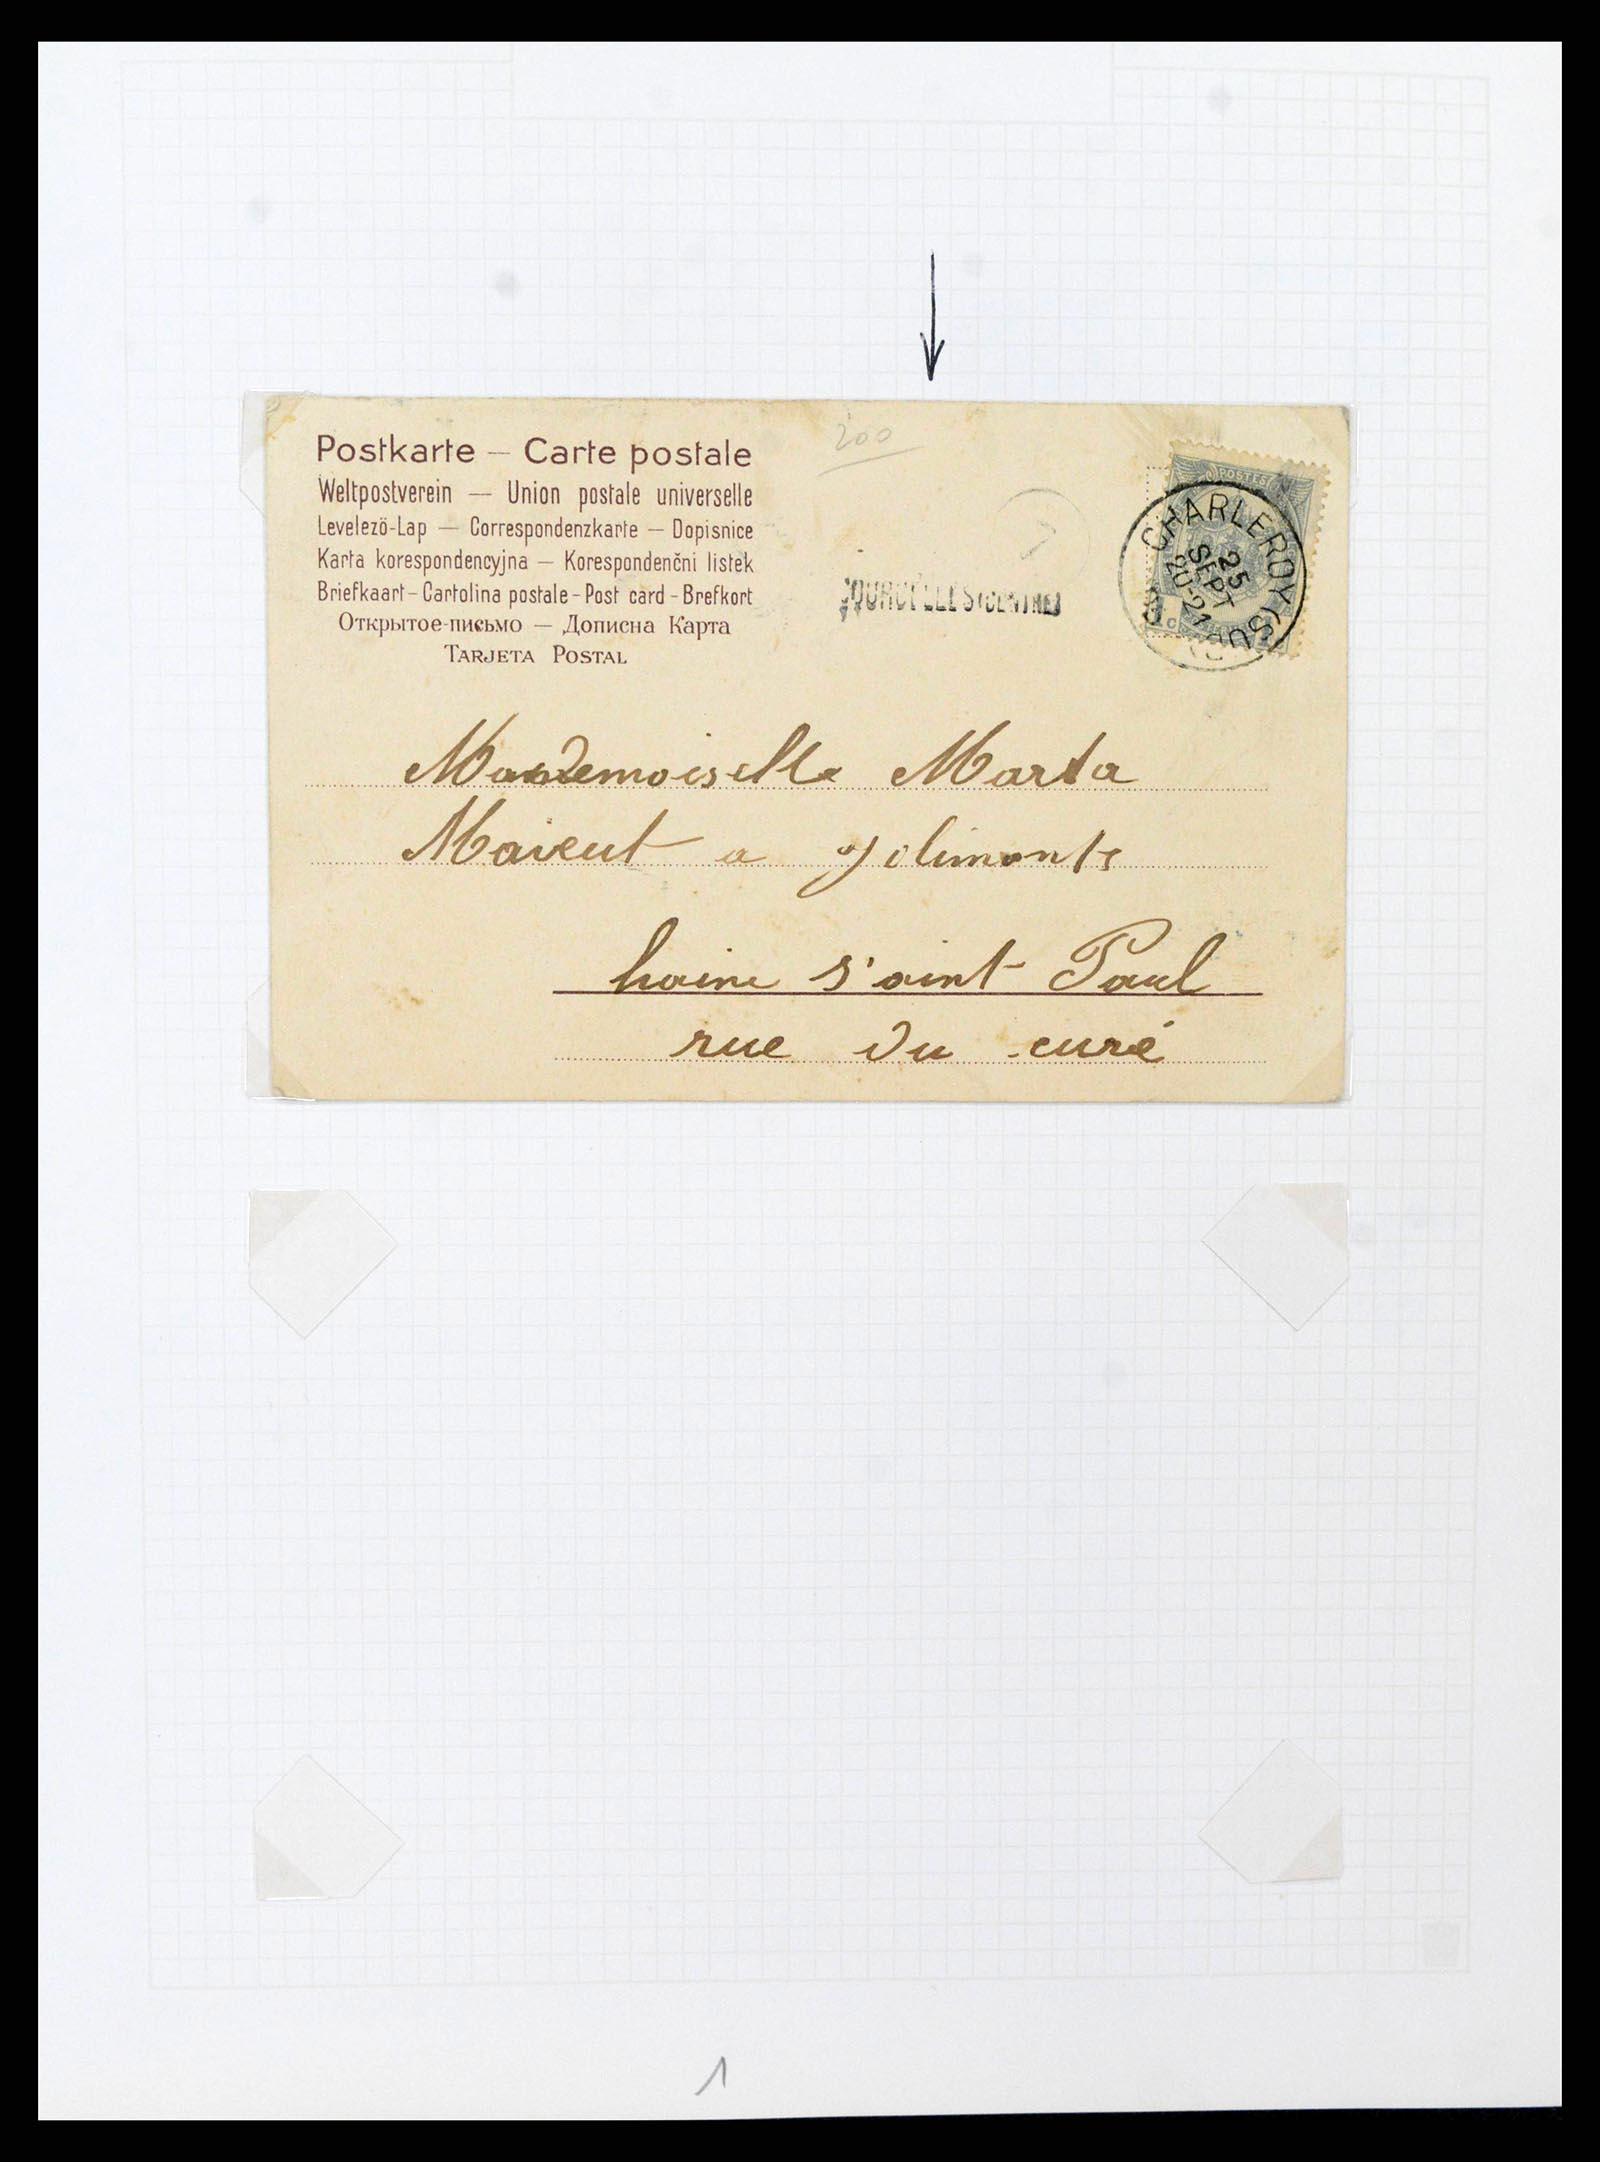 200
Postkarte — Carte postale
Weltpostverein — Union postale universelle
Levelező-Lap — Correspondenzkarte — Dopisnice
Karta korespondencyjna — Korespondenční listek
Briefkaart - Cartolina postale - Post card - Brefkort
Открытое-письмо — Дописна Карта
TARJETA POSTAL
COURCELLES (CENTRE)
POSTES
CHARLEROY (SUD)
25
SEPT
20-21
Mademoiselle Marta
Maieut a Jolimonts
haine s'aint Paul
rue du curé
1